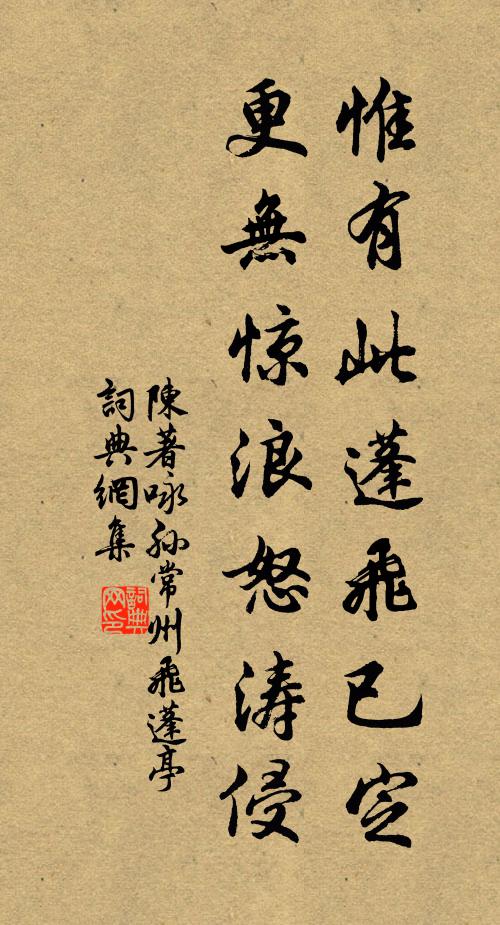 惟有此蓬飛已定
更無惊浪怒涛侵
陳著咏孙常州飛蓬亭
詞典網集
詞典网印